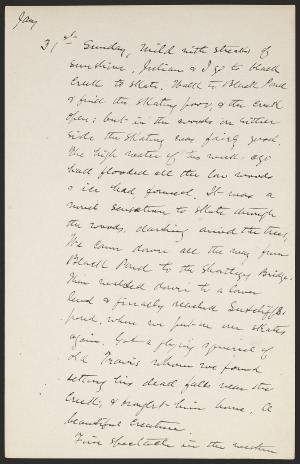 Jany
31st Sunday, Mild with streaks of
sunshine, Julian & I go to black
Creek to skate. Walk to Black Pond
& find the skating poor, & the creek
open; but in the woods on either
side the skating was fairly good.
The high water of two weeks ago
had flooded all the low woods
& ice had formed. It was a
novel sensation to skate through
the woods, dashing around the trees,
We came down all the way from
Black Pond to the Shattega Bridge.
Then walked down to a lower
land & finally reached Sutcliffs
pond, when we put on our skates
again. Got a flying squirrel of
old Travis whom we found
setting his dead falls near the
Creek, & brought him home. A
beautiful creature.
Fine spectacle in the western